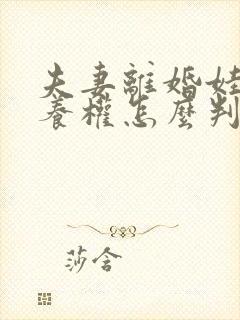 夫妻離婚娃
養權怎麼判
莎含